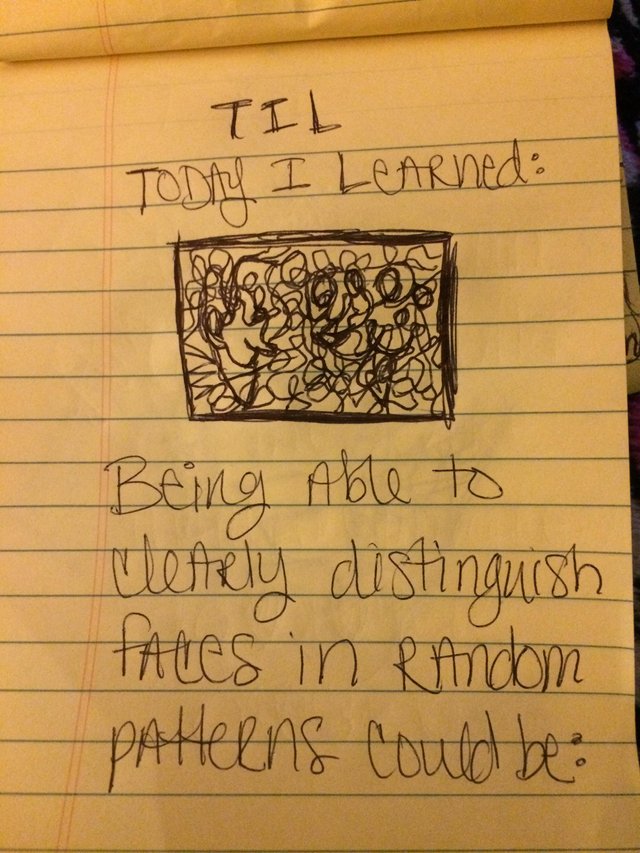 TIL
TODAY I LEARNed:
Being Able to
cleARly distinguish
fAces in RAndom
pAtteRns could be: